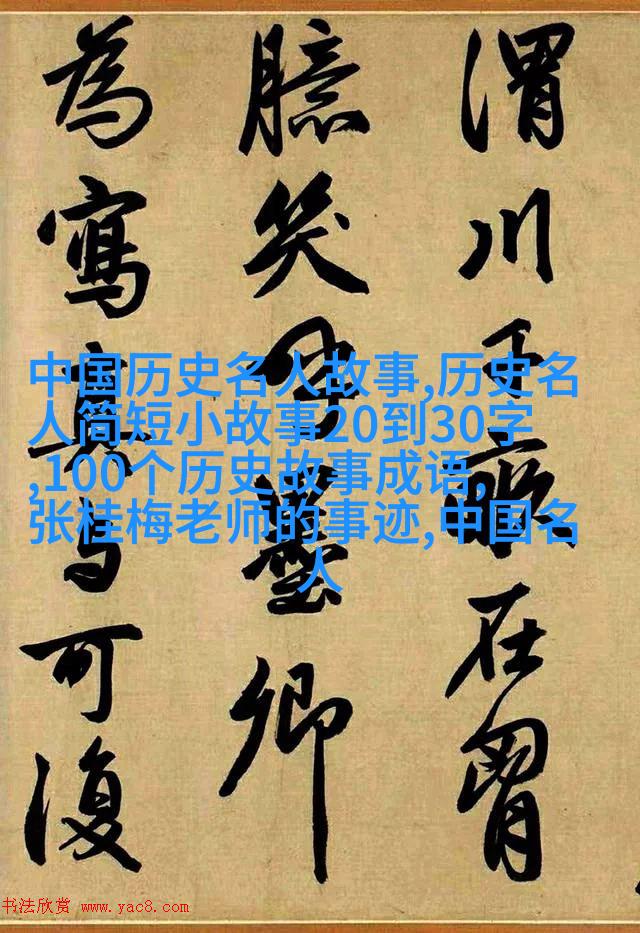 渭川千畝在胷
臆笑呼墨卿
為寫真与可復
中国历史名人故事,历史名
人简短小故事20到30字
,100个历史故事成语,
张桂梅老师的事迹,中国名
人
书法欣赏 www.yac8.com